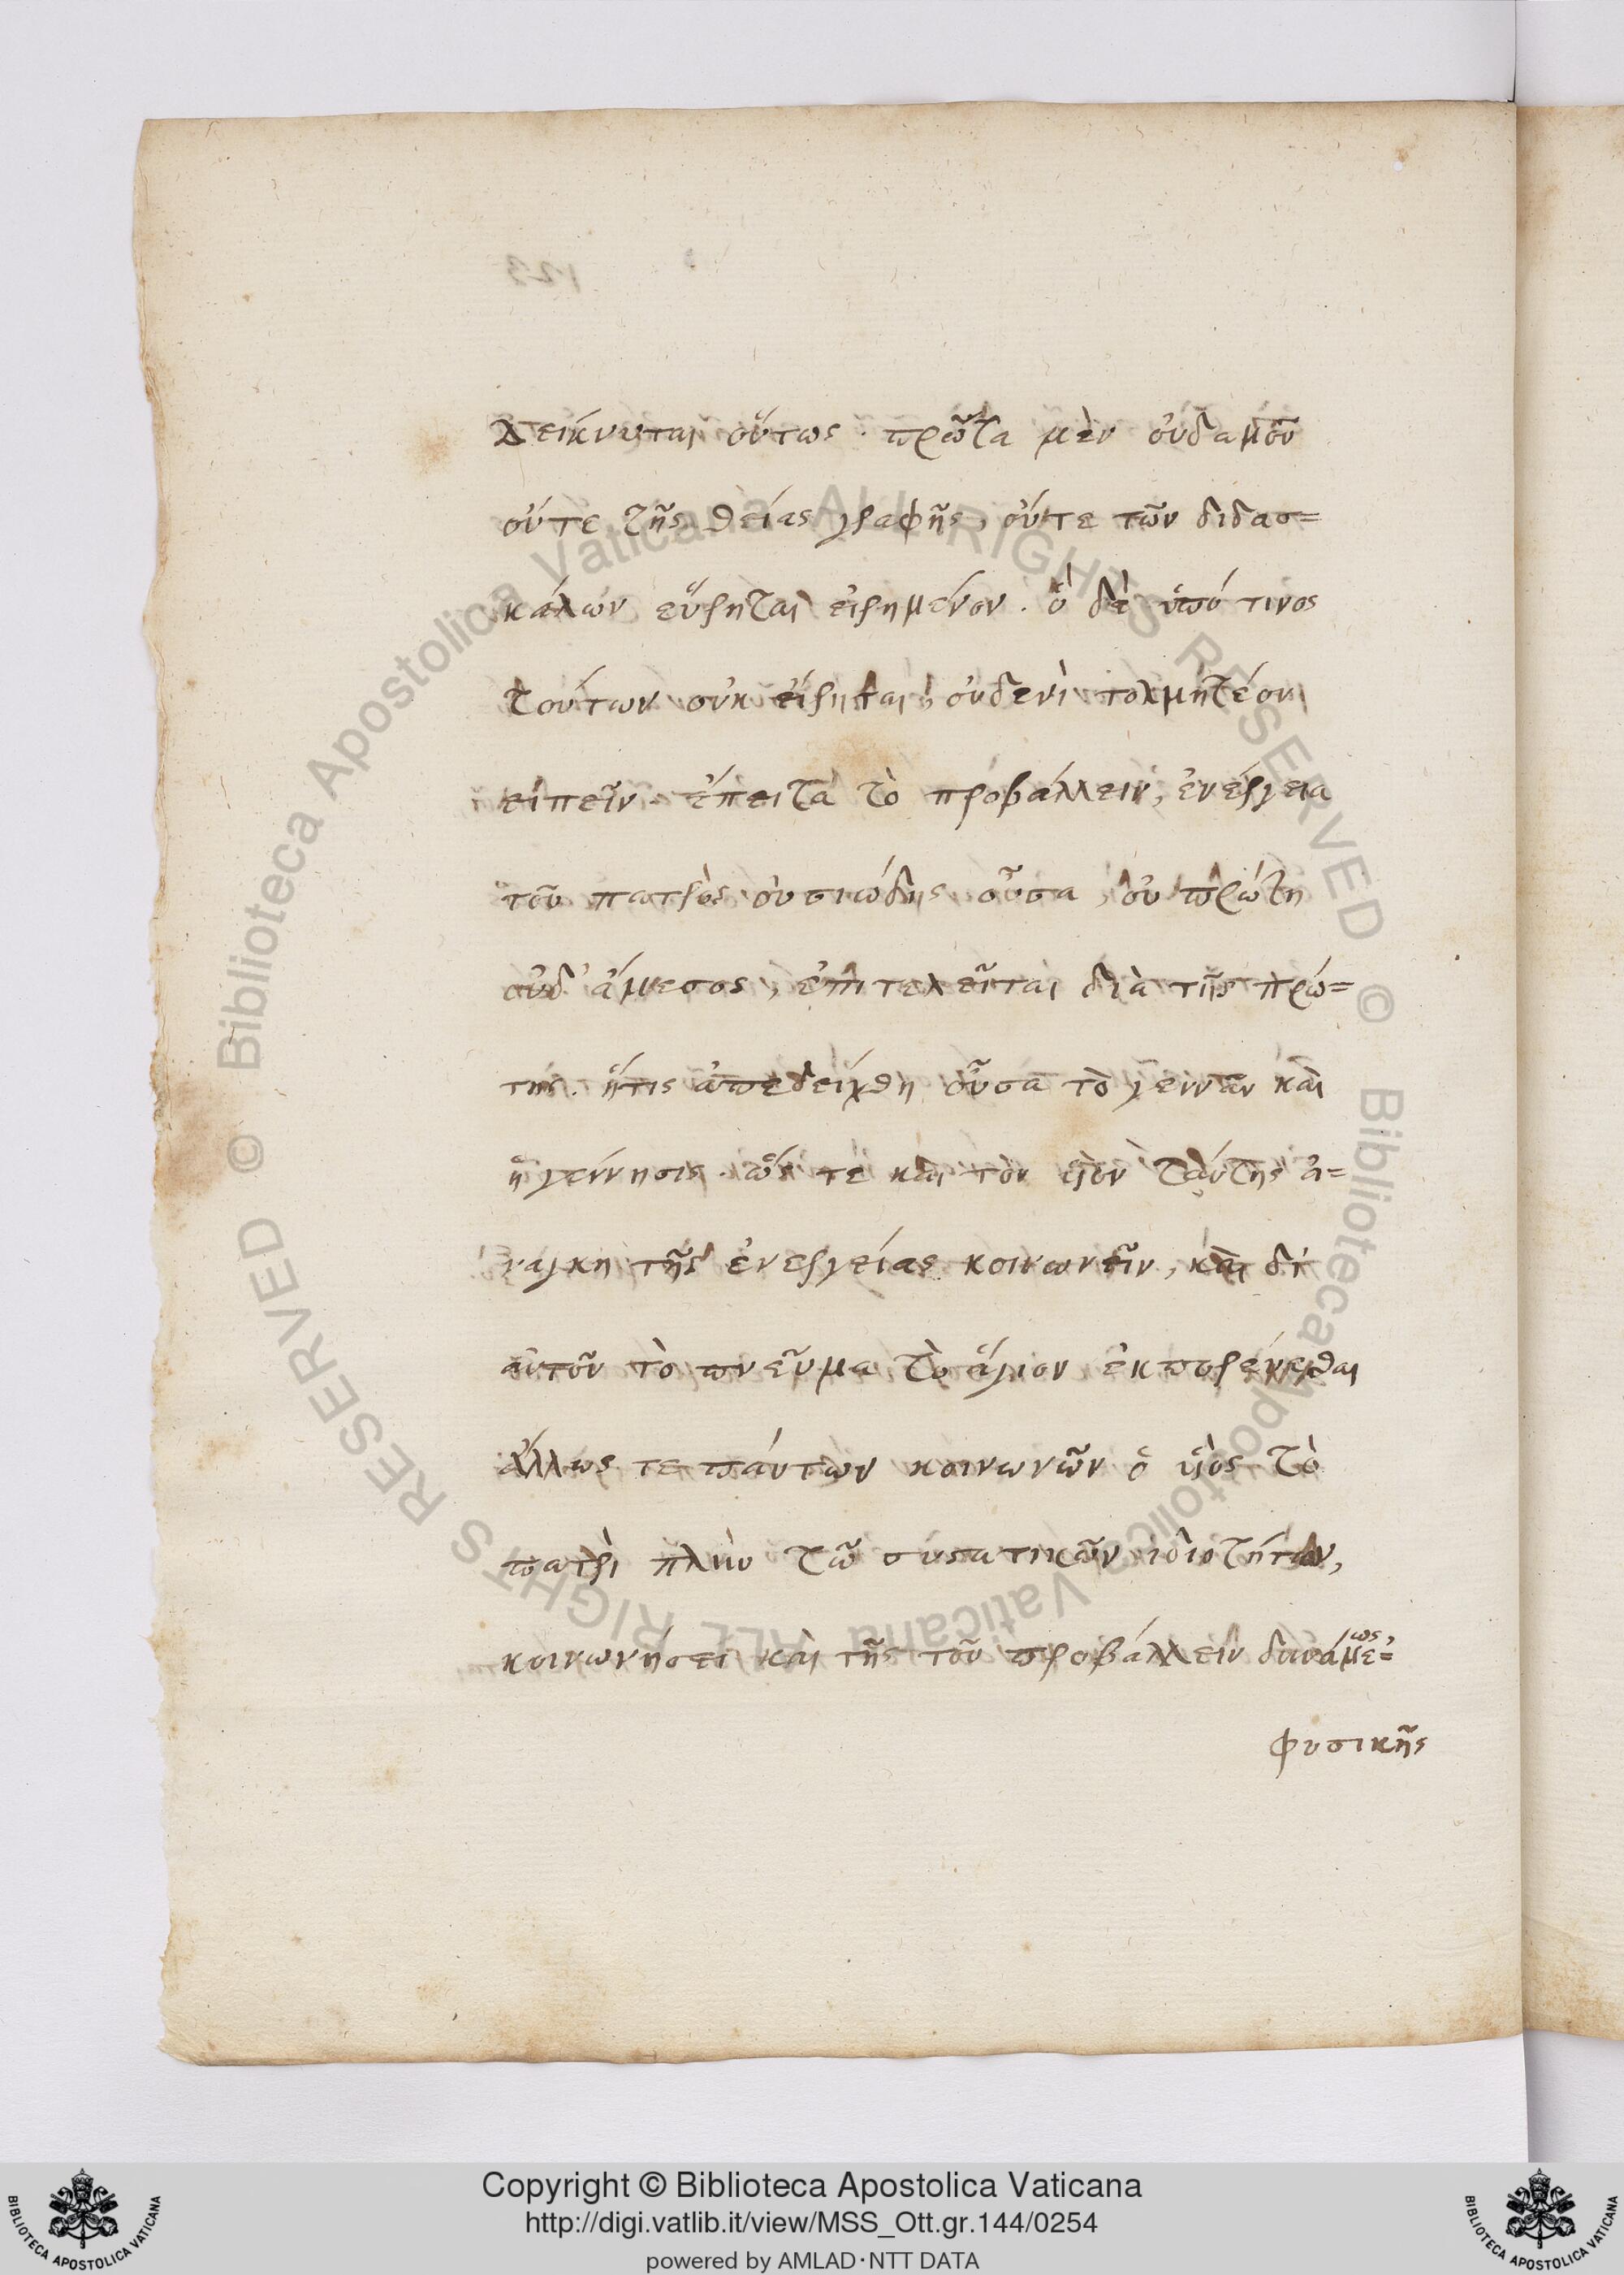 δείκνυται οὕτως · πρῶτα μὲν οὐδαμοῦ
οὔτε τῆς θείας γραφῆς, οὔτε τῶν διδασ=
κάλων εὕρηται εἰρημένον. ὃ δὲ ὑπό τινος
τούτων οὐκ εἴρηται, οὐδενὶ τολμητέον
εἰπεῖν. ἔπειτα τὸ προβάλλειν, ἐνέργεια
τοῦ πατρὸς οὐσιώδης οὖσα, οὐ πρώτη
οὐδ' ἄμεσος, ἐπιτελεῖται διὰ τῆς πρώ=
της. ἥτις ἀπεδείχθη οὖσα τὸ γεννᾶν καὶ
ἡ γέννησις. ὥς τε καὶ τὸν υἱὸν ταύτης ἀ=
νάγκη τῆς ἐνεργείας κοινωνεῖν, καὶ δι'
αὐτοῦ τὸ πνεῦμα τὸ ἅγιον ἐκπορεύεσθαι
ἄλλως τε πάντων κοινωνῶν ὁ υἱὸς τὸ
πατρὶ πλὴν τῶ συστατικῶν ἰδιοτήτων,
κοινωνήσει καὶ τῆς τοῦ προβάλλειν δυνάμεως
φυσικῆς
123
Copyright © Biblioteca Apostolica Vaticana
http://digi.vatlib.it/view/MSS_Ott.gr.144/0254
powered by AMLAD·NTT DATA
BIBLIOTECA APOSTOLICA VATICANA
BIBLIOTECA APOSTOLICA VATICANA
© Biblioteca Apostolica Vaticana ALL RIGHTS RESERVED © Biblioteca Apostolica Vaticana ALL RIGHTS RESERVED